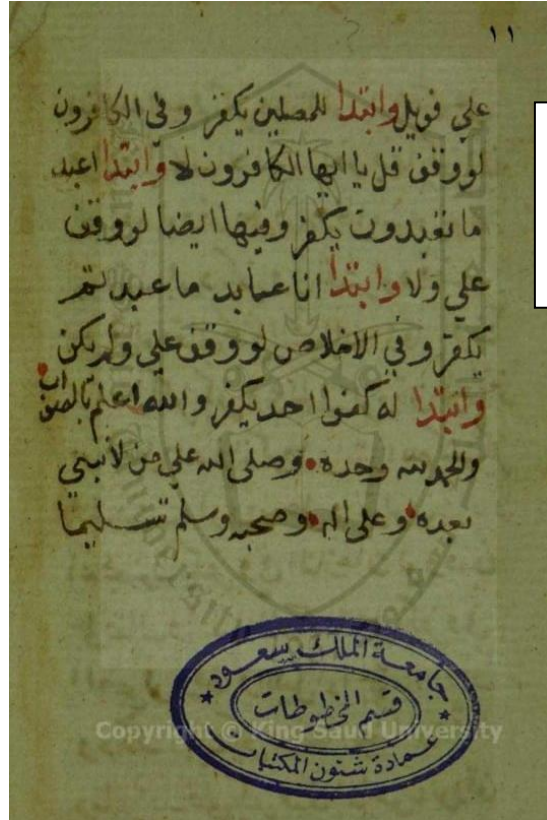 ١١
علي فويل وابتدا للمصلين يكفر وفي الكافرون
لووقف قل يا ايها الكافرون لا وابتدا اعبد
ما تعبدون يكفر وفيها ايضا لووقف
علي ولا وابتدا انا عابد ما عبدتم
يكفر وفي الاخلاص لووقف علي ولم يكن
وابتدا له كفوا احد يكفر والله اعلم بالصواب
والحمد لله وحده وصلى الله علي من لا نبي
بعده وعلى اله وصحبه وسلم تسليما
جامعة الملك سعود
قسم المخطوطات
عمادة شئون المكتبات
Copyright © King Saud University